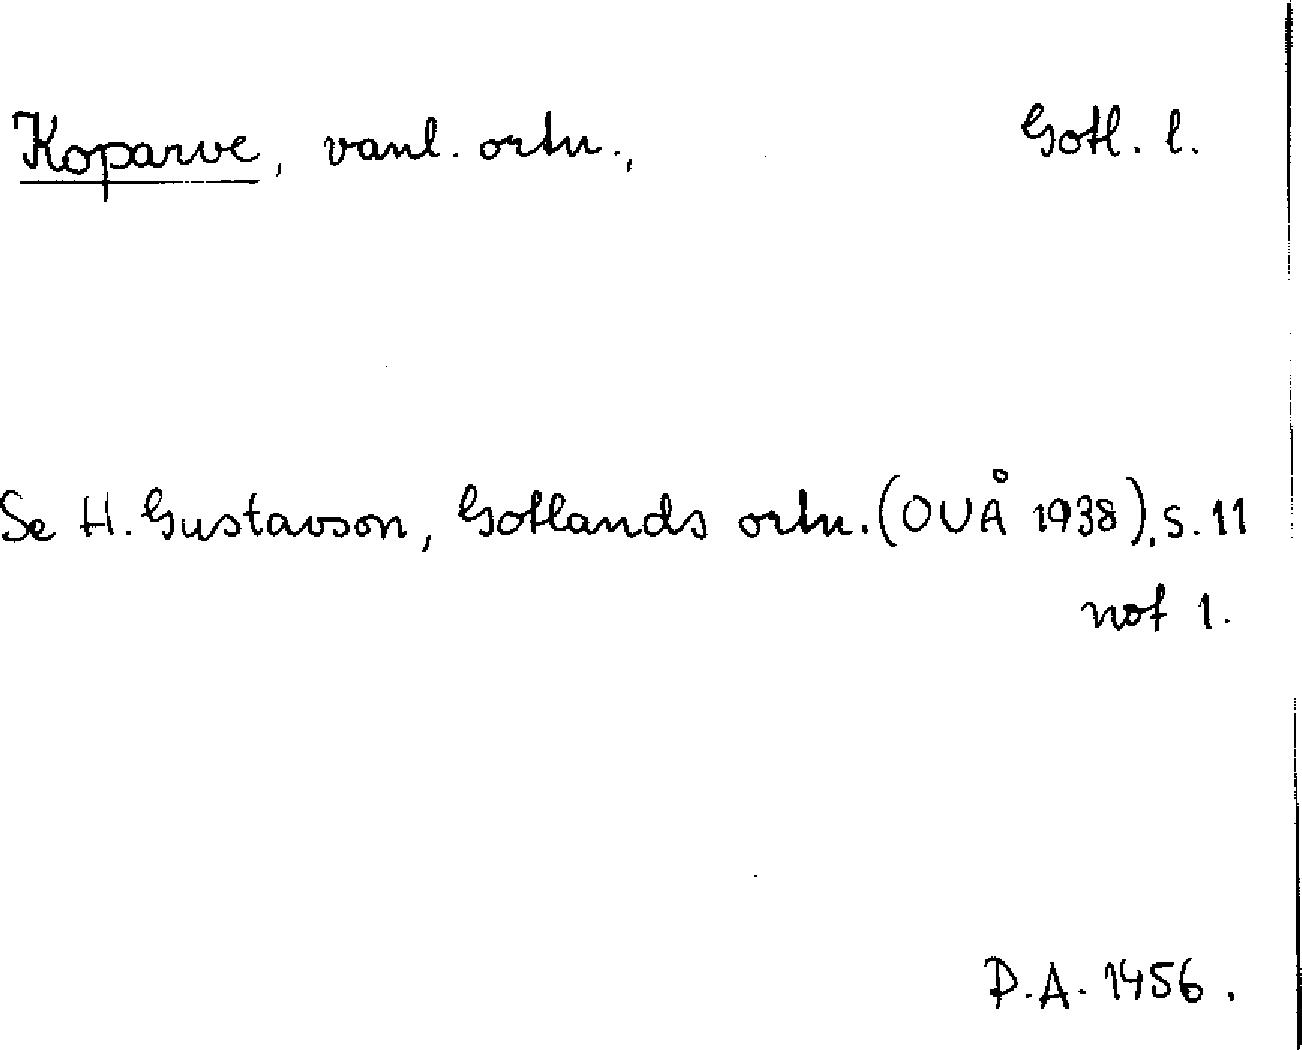 Koparve, vanl. ortn., Gotl. l.
Se H. Gustavson, Gotlands ortn. (OUÅ 1938), s. 11
not 1.
D.A. 1456.